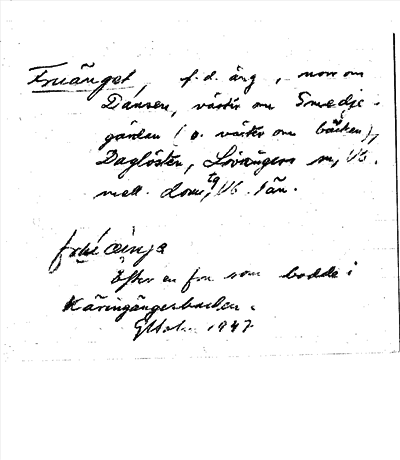 Fruänget, f.d. äng, norr om
Tjänsen, väster om Smedje-
gärdan (o. väster om bäcken),
Daglösten, Lövångers sn, Vb.
mell. dom, tg Vb. län.
Efter en fru som bodde i
Käringängesbacken.
GHolm 1947